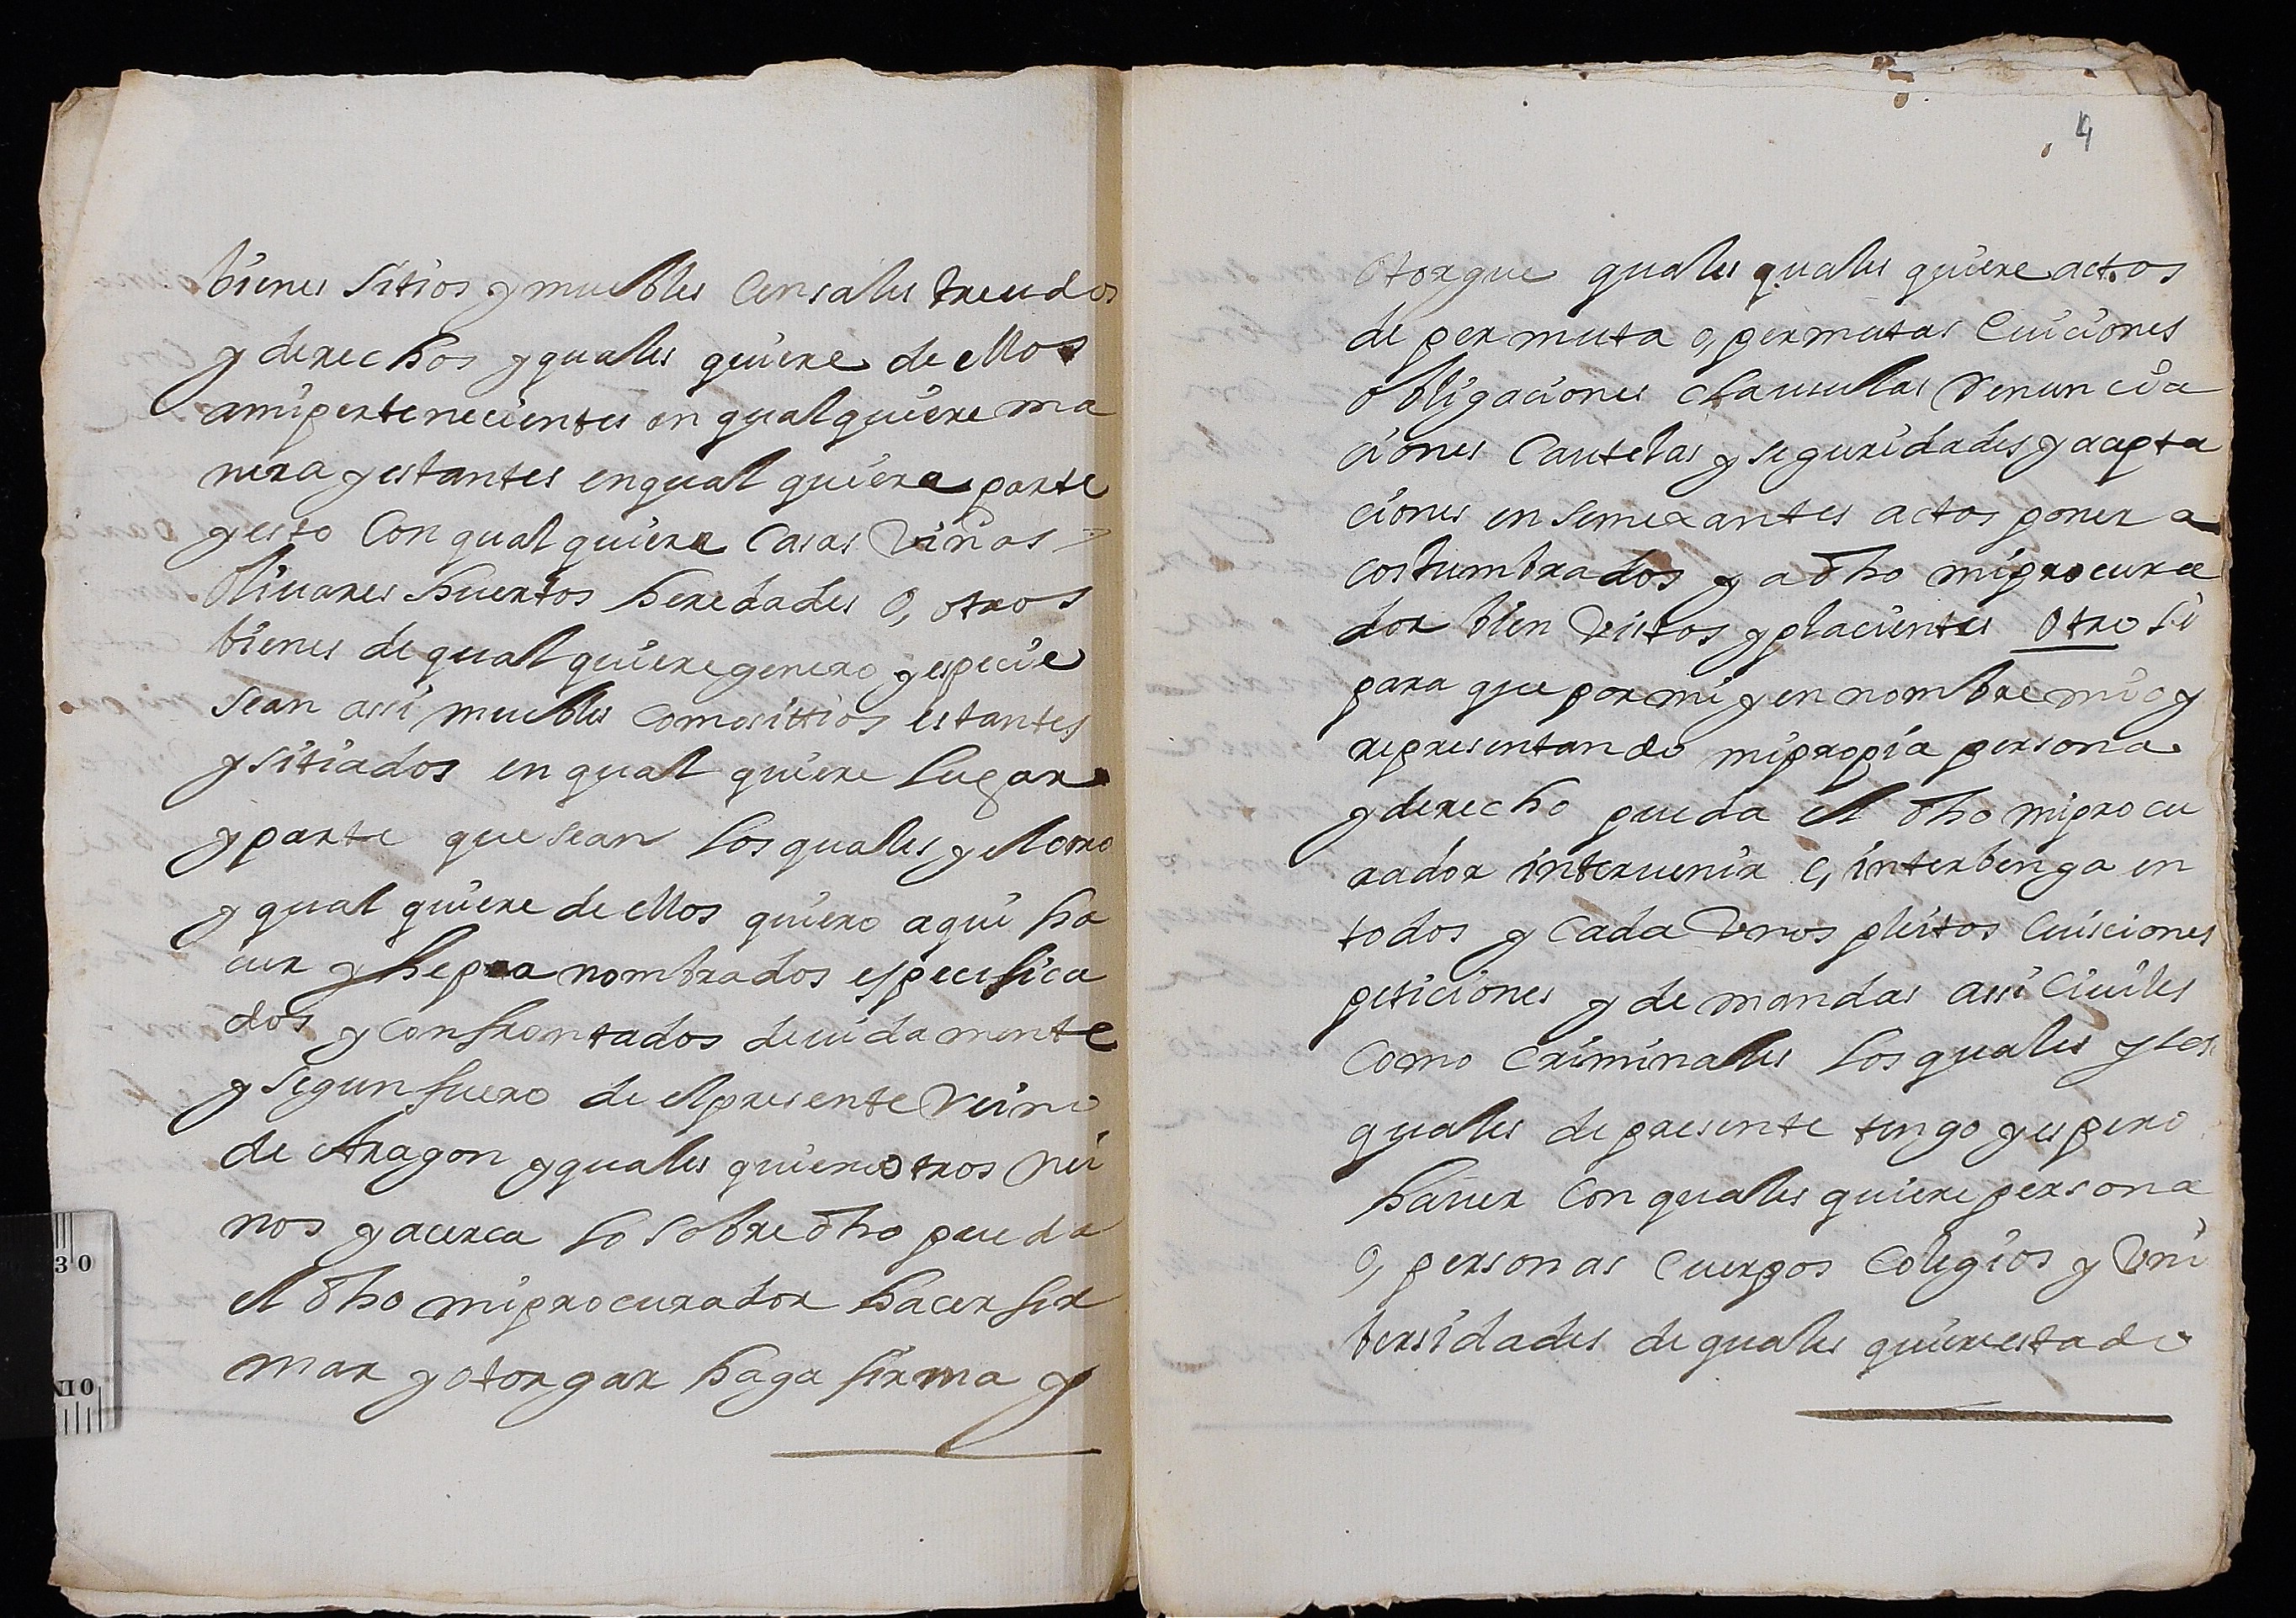 bienes sitios y muebles censales treudos
y derechos y quales quiere de ellos
a mi pertenecientes en qualquiere ma
nera y estantes en qual quiera parte
y esto con qual quiera casas viñas
oliuares huertos heredades o, otros
bienes de qual quiere genero y especie
sean assi muebles como sittios estantes
y sitiados en qual quiere lugar
y parte que sean los quales y el
y qual quiere de ellos quiero aqui ha
uer y he por nombrados especifica
dos y confrontados deuidamente
y segun fuero de el presente reino
de Aragon y quales quiere otros rei
nos y acerca lo sobre dho pueda
el dho mi procurador hacer fir
mar y otorgar haga firma y
4
otorgue quales quales quiere actos
de permuta o, permutas euiciones
obligaciones clausulas renuncia
ciones cautelas y seguridades y acepta
ciones en semexantes actos poner a
costumbrados y a dho mi procura
dor bien vistos y placientes Otro si
para que por mi y en nombre mio y
representando mi propia persona
y derecho pueda el dho mi procu
rador interuenir e, interbenga en
todos y cada vnos pleitos euisciones
peticiones y demandas assi ciuiles
como criminales los quales y los
quales de presente tengo y espero
hauer con quales quiere persona
o, personas cuerpos colegios y vni
bersidades de quales quiere estado
30